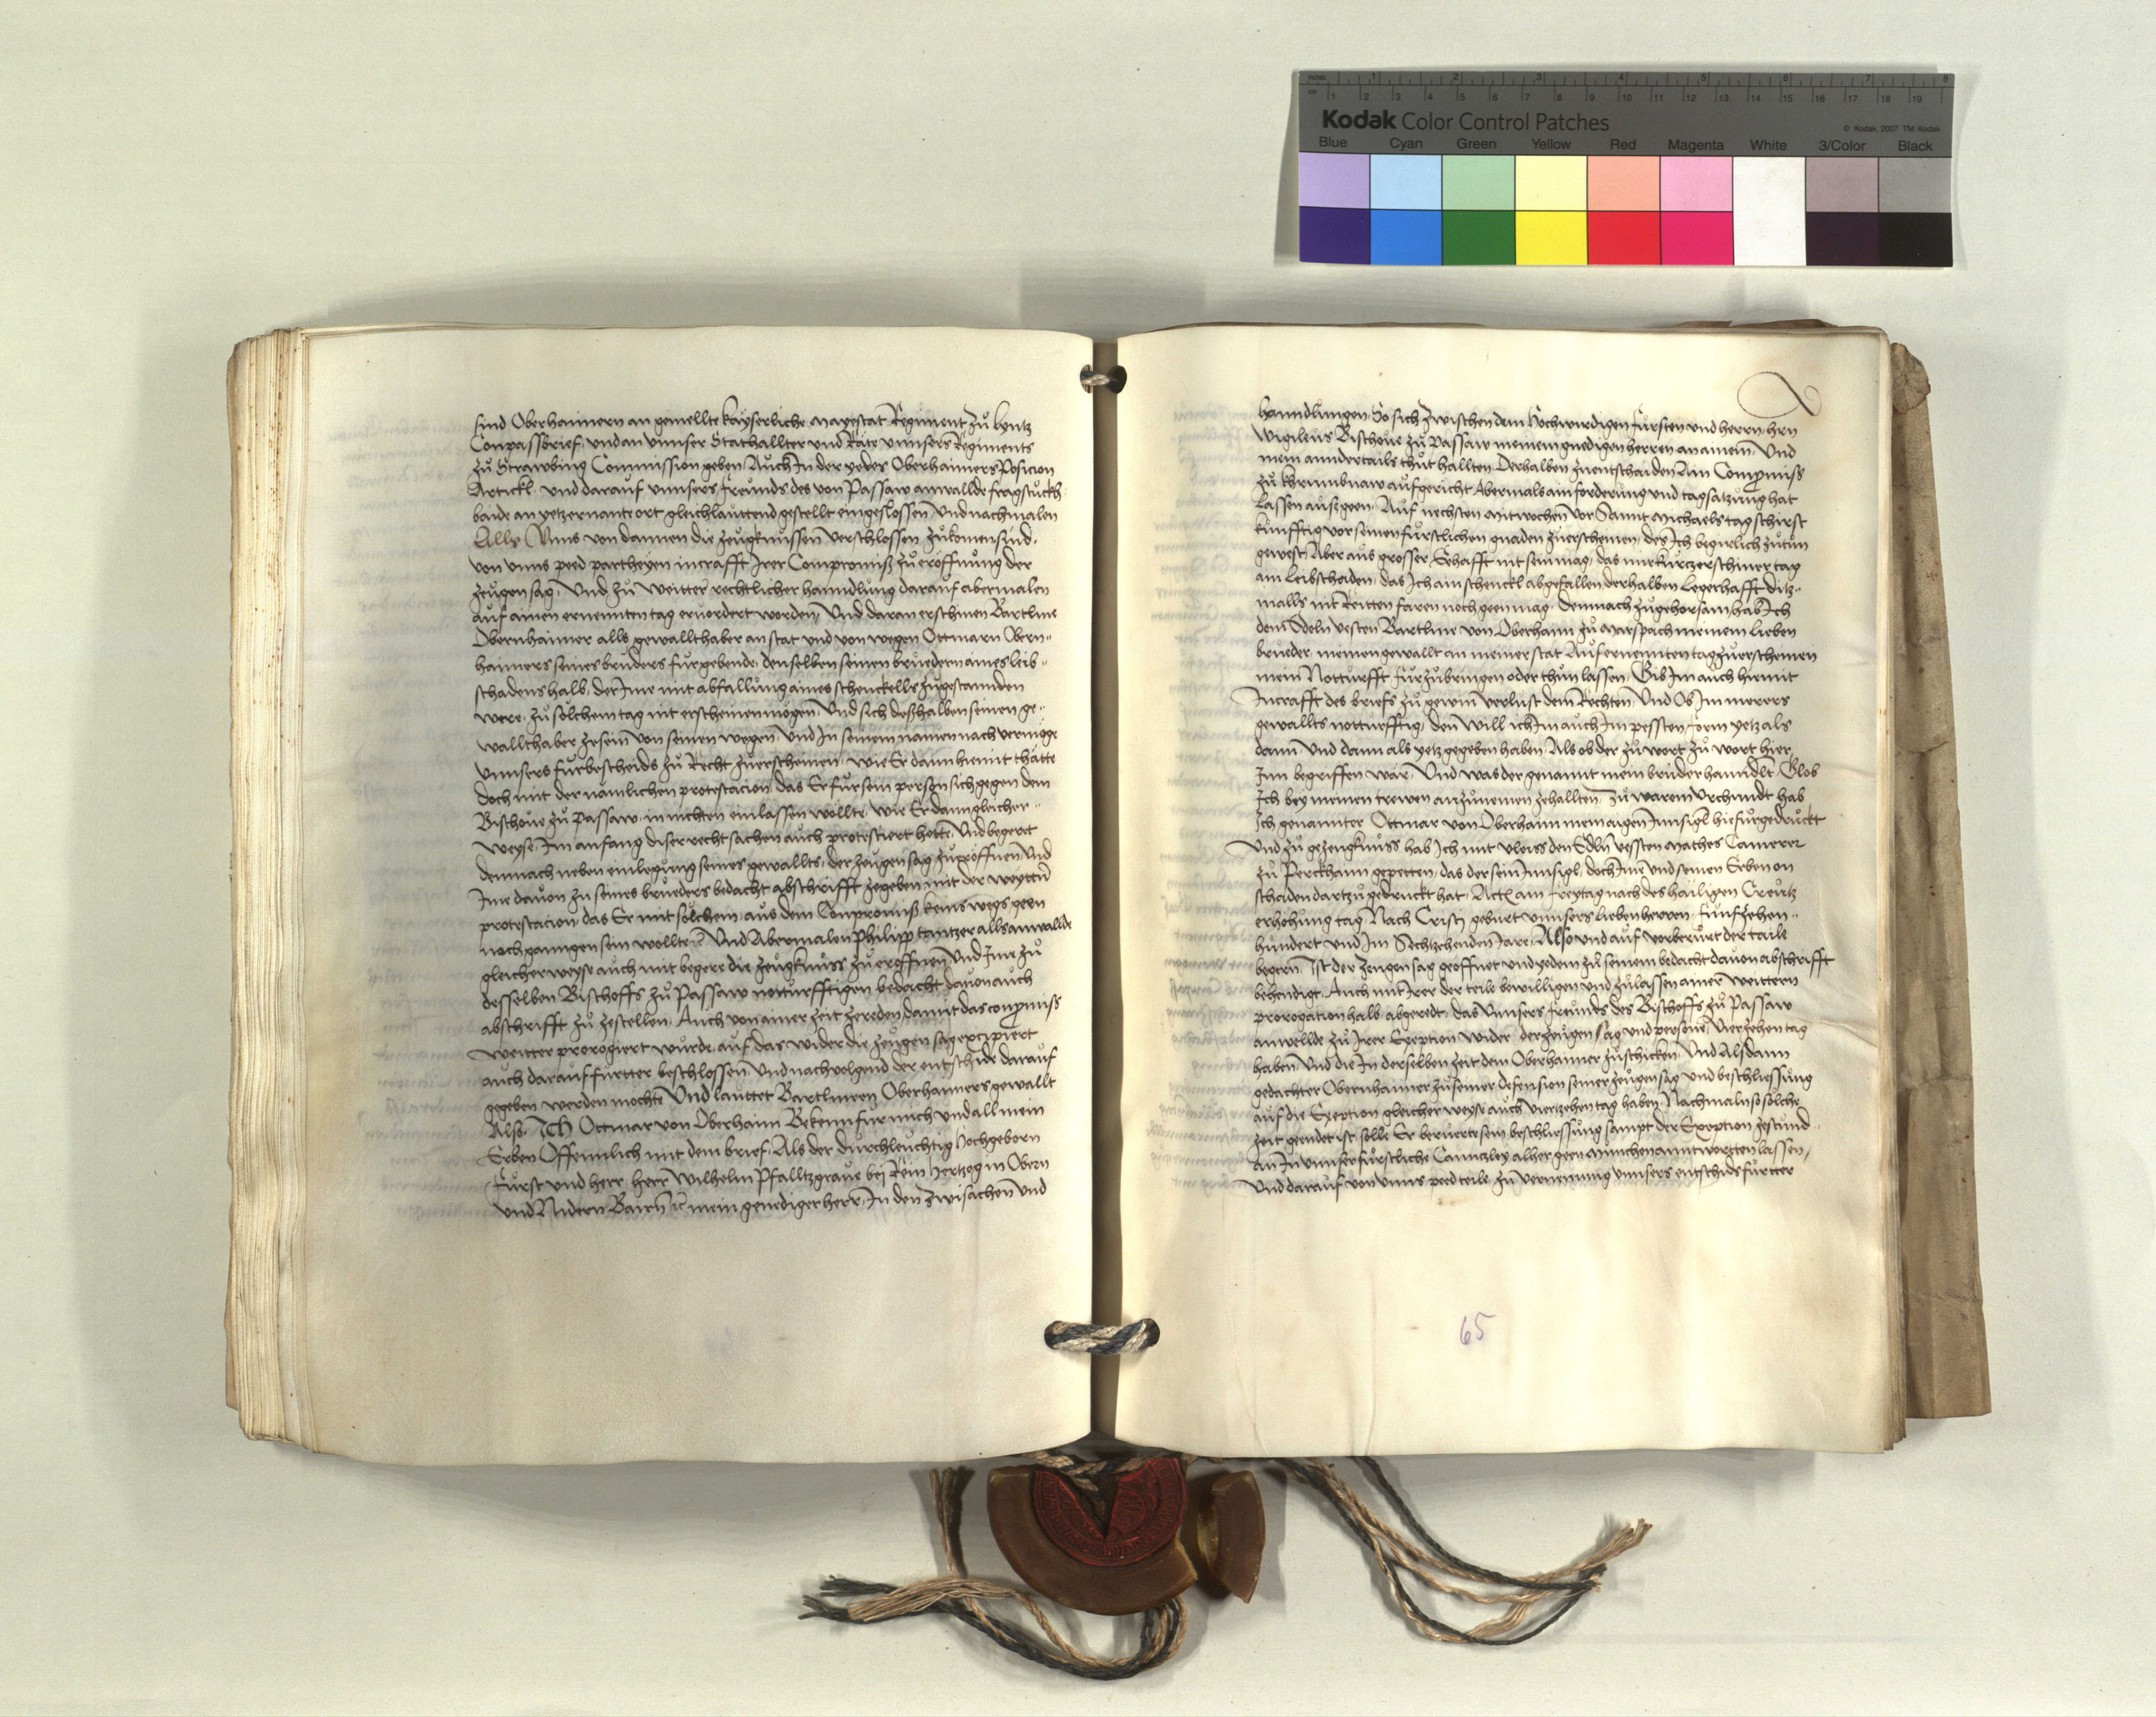 inches 1 2 3 4 5 6 7 8
cm 1 2 3 4 5 6 7 8 9 10 11 12 13 14 15 16 17 18 19
Kodak Color Control Patches
© Kodak, 2007 TM: Kodak
Blue Cyan Green Yellow Red Magenta White 3/Color Black
sind Oberhaimern an gemellte kayserliche mayestat Regiment zů Lyntz
Conpassbrief, und an vnnser Stathallter vnd Räte vnnsers Regiments
zů Strawbing Commission geben Auch In der yedes Oberhaimers Posicion
Artickl und darauf vnnsers freunds des von Passaw anwallde fragstuckh
baide an yetzernante ort gleichlauttend gestellt eingeslossen Vnd nachmalen
Alls Vnns von dannen die zeugknussen verschlossen zůkomen sind.
von vnns peed partheyen incrafft Irer Compromiß zů eröffnung der
zeugen sag, Und zů weitter rechtlicher hanndlung darauf abermalen
auf ainen ernennten tag eruordert worden, Vnd daran erschinen Bartlme
Obernhaimer alls gewallthaber an stat und von wegen Ottmarn Obern-
haimers seines brůders furgebende, denselben seinen brůedern aines leib-
schadens halb, der Ime mit abfallung aines schenckells zůgestannden
were, zů solchem tag nit erscheinen mögen, Vnd sich deßhalben seinen ge-
wallthaber zesein von seinen wegen, Vnd In seinem namen nach vermöge
vnnsers furbeschaids zů Recht zůerscheinen, wie Er dann hiemit thätte
doch mit der nämlichen protestacion das Er fur sein person sich gegen dem
Bischoue zů Passaw, in nichten einlassen wollte, wie Er dann gleicher-
weyse Im anfang diser recht sachen auch protestiert hette, Vnd begert
demnach neben einlegung seines gewallts, der zeugen sag zueröffnen Vnd
Ime dauon zu seines brůeders bedacht abschrifft zegeben mit der weytern
protestacion, das Er mit solchem, aus dem Conpromiß keinswegs geen
noch ganngen sein wollte, Vnd Abermalen Philipp tantzer alls anwallde
gleicherweyse auch mit begere die zeugknuss zů eröffnen Vnd Ime zů
desselben Bischoffs zů Passaw notturfftigen bedacht dauon auch
abschrifft zů zestellen, Auch von ainer zeit zereden, damit das conpromiss
weitter prorogiert wurde, auf das wider die zeugen sag excipiert
auch darauf furtter beschlossen Vnd nachvolgend der entschide darauf
gegeben werden möchte Und lauttet Bartlmeen Oberhaimers gewallt
Also. Ich Ottmar von Oberhaim Bekenn fur mich und all mein
Erben Offennlich mit dem brief, Als der durchleuchtig hochgeborn
Fürst und herr, herr Wilhelm Pfalltzgraue bey Rein Hertzog in Obern
und Nidern Bairn ꝛc mein genediger herr, In den zwisachen und
hanndlungen, So sich zwischen dem hochwirdigen fursten und herrn, hrn
Wigileus Bischoue zů Passaw meinem gnedigen herren an ainem, Und
mein anndertails thůt hallten, Derhalben zu entschaiden Ain Compromiss
zů khrembnaw aufgericht, Abermals ain forderung und tagsatzung hat
Lassen außgeen, Auf nechsten mitwochen vor Sannt michaels tag schirst
kunfftig vor seinen furstlichen gnaden zuerscheinen, des Ich begirlich zůtun
gewest, Aber aus grosser Ehafft nit sein mag, das mir kurczerschiner tag
am leib schaden, das Ich ain schenckl abgefallen, derhalben Legerhafft ditz-
malls nit Reitten faren noch geen mag, demnach zu gehorsam, hab Ich
dem Edeln vesten Bartlme von Oberhaim zů marspach meinem lieben
brueder, meinen gewallt an meiner stat Auf ernennten tag zuerscheinen
mein Notturfft furzůbringen oder thůn lassen, Gib Im auch hiemit
Incrafft des briefs zů gewin verlust dem Rechten, Und Ob Im merers
gewallts notturfftig, den will ich Im auch Im pessten form yetz als
dann und dann als yetz gegeben haben, Als ob der zů wort zů wort hier-
Inn begriffen wär, Und was der genannt mein brueder hanndlt, Glob
Ich bey meinen trewen anzunemen zehallten, Zů warem Vrchundt hab
Ich genannter Ottmar von Oberhaim mein aigen Innsigl hiefurgedruckt
Und zů gezeugknuss hab Ich mit vleiss den Edln vessten mathes Camerer
zů Perckhaim gepetten, das der sein Innsigl, doch Ime und seinen Erben on
schaden dartzů gedruckt hat, Act am freytag nach des hailigen Creutz
erhöhung tag Nach Cristj geburt vnnsers lieben herren, funfzehen-
hundert und Im Sechtzehenden Jare, Also und auf vorberurt der taile
begern, Ist der zeugen sag geoffnet und yedem zů seinem bedacht dauon abschrifft
behendigt, Auch mit Irer der teile bewilligen und zůlassen ainer weittern
prorogation halb, abgeredt, das vnnsers freunds des Bischoffs zů Passaw
anwellde zů Irer Exeption wider der zeugen sag vnd persone, Vierzehen tag
haben Und die In derselben zeit dem Oberhaimer zůschicken Und Alsdann
gedachter Obernhaimer zů seiner defension seiner zeugen sag Und beschliessung
auf die Exeption gleicher weyse auch viertzehen tag haben, Nachmaln so solche
zeit geendet ist, solle Er beruerte sein beschliessung sampt der Exeption zestund-
an In vnnser furstliche Canntzley alher geen munchen anntwortten lassen,
Und darauf von vnns peed teile, zu vernemung vnnsers entschids furtter
65